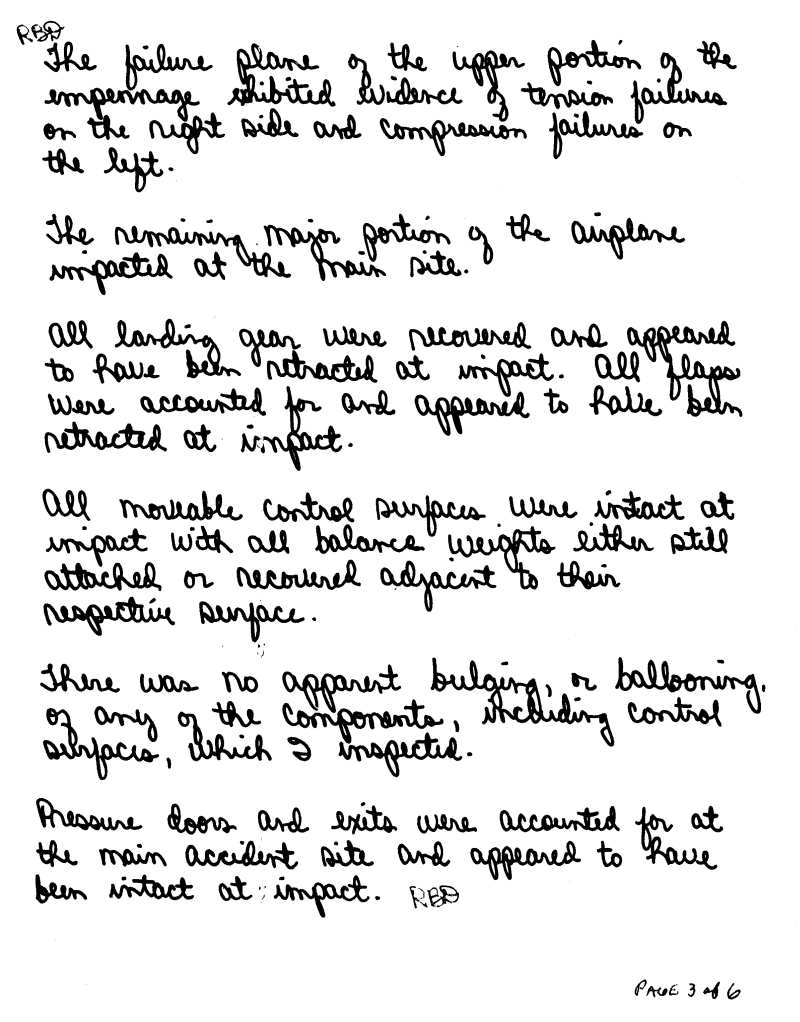 RBD
The failure plane of the upper portion of the
empennage exhibited evidence of tension failures
on the right side and compression failures on
the left.
The remaining major portion of the airplane
impacted at the main site.
All landing gear were recovered and appeared
to have been retracted at impact. All flaps
were accounted for and appeared to have been
retracted at impact.
All moveable control surfaces were intact at
impact with all balance weights either still
attached or recovered adjacent to their
respective surface.
There was no apparent bulging, or ballooning,
of any of the components, including control
surfaces, which I inspected.
Pressure doors and exits were accounted for at
the main accident site and appeared to have
been intact at impact. RBD
PAGE 3 of 6